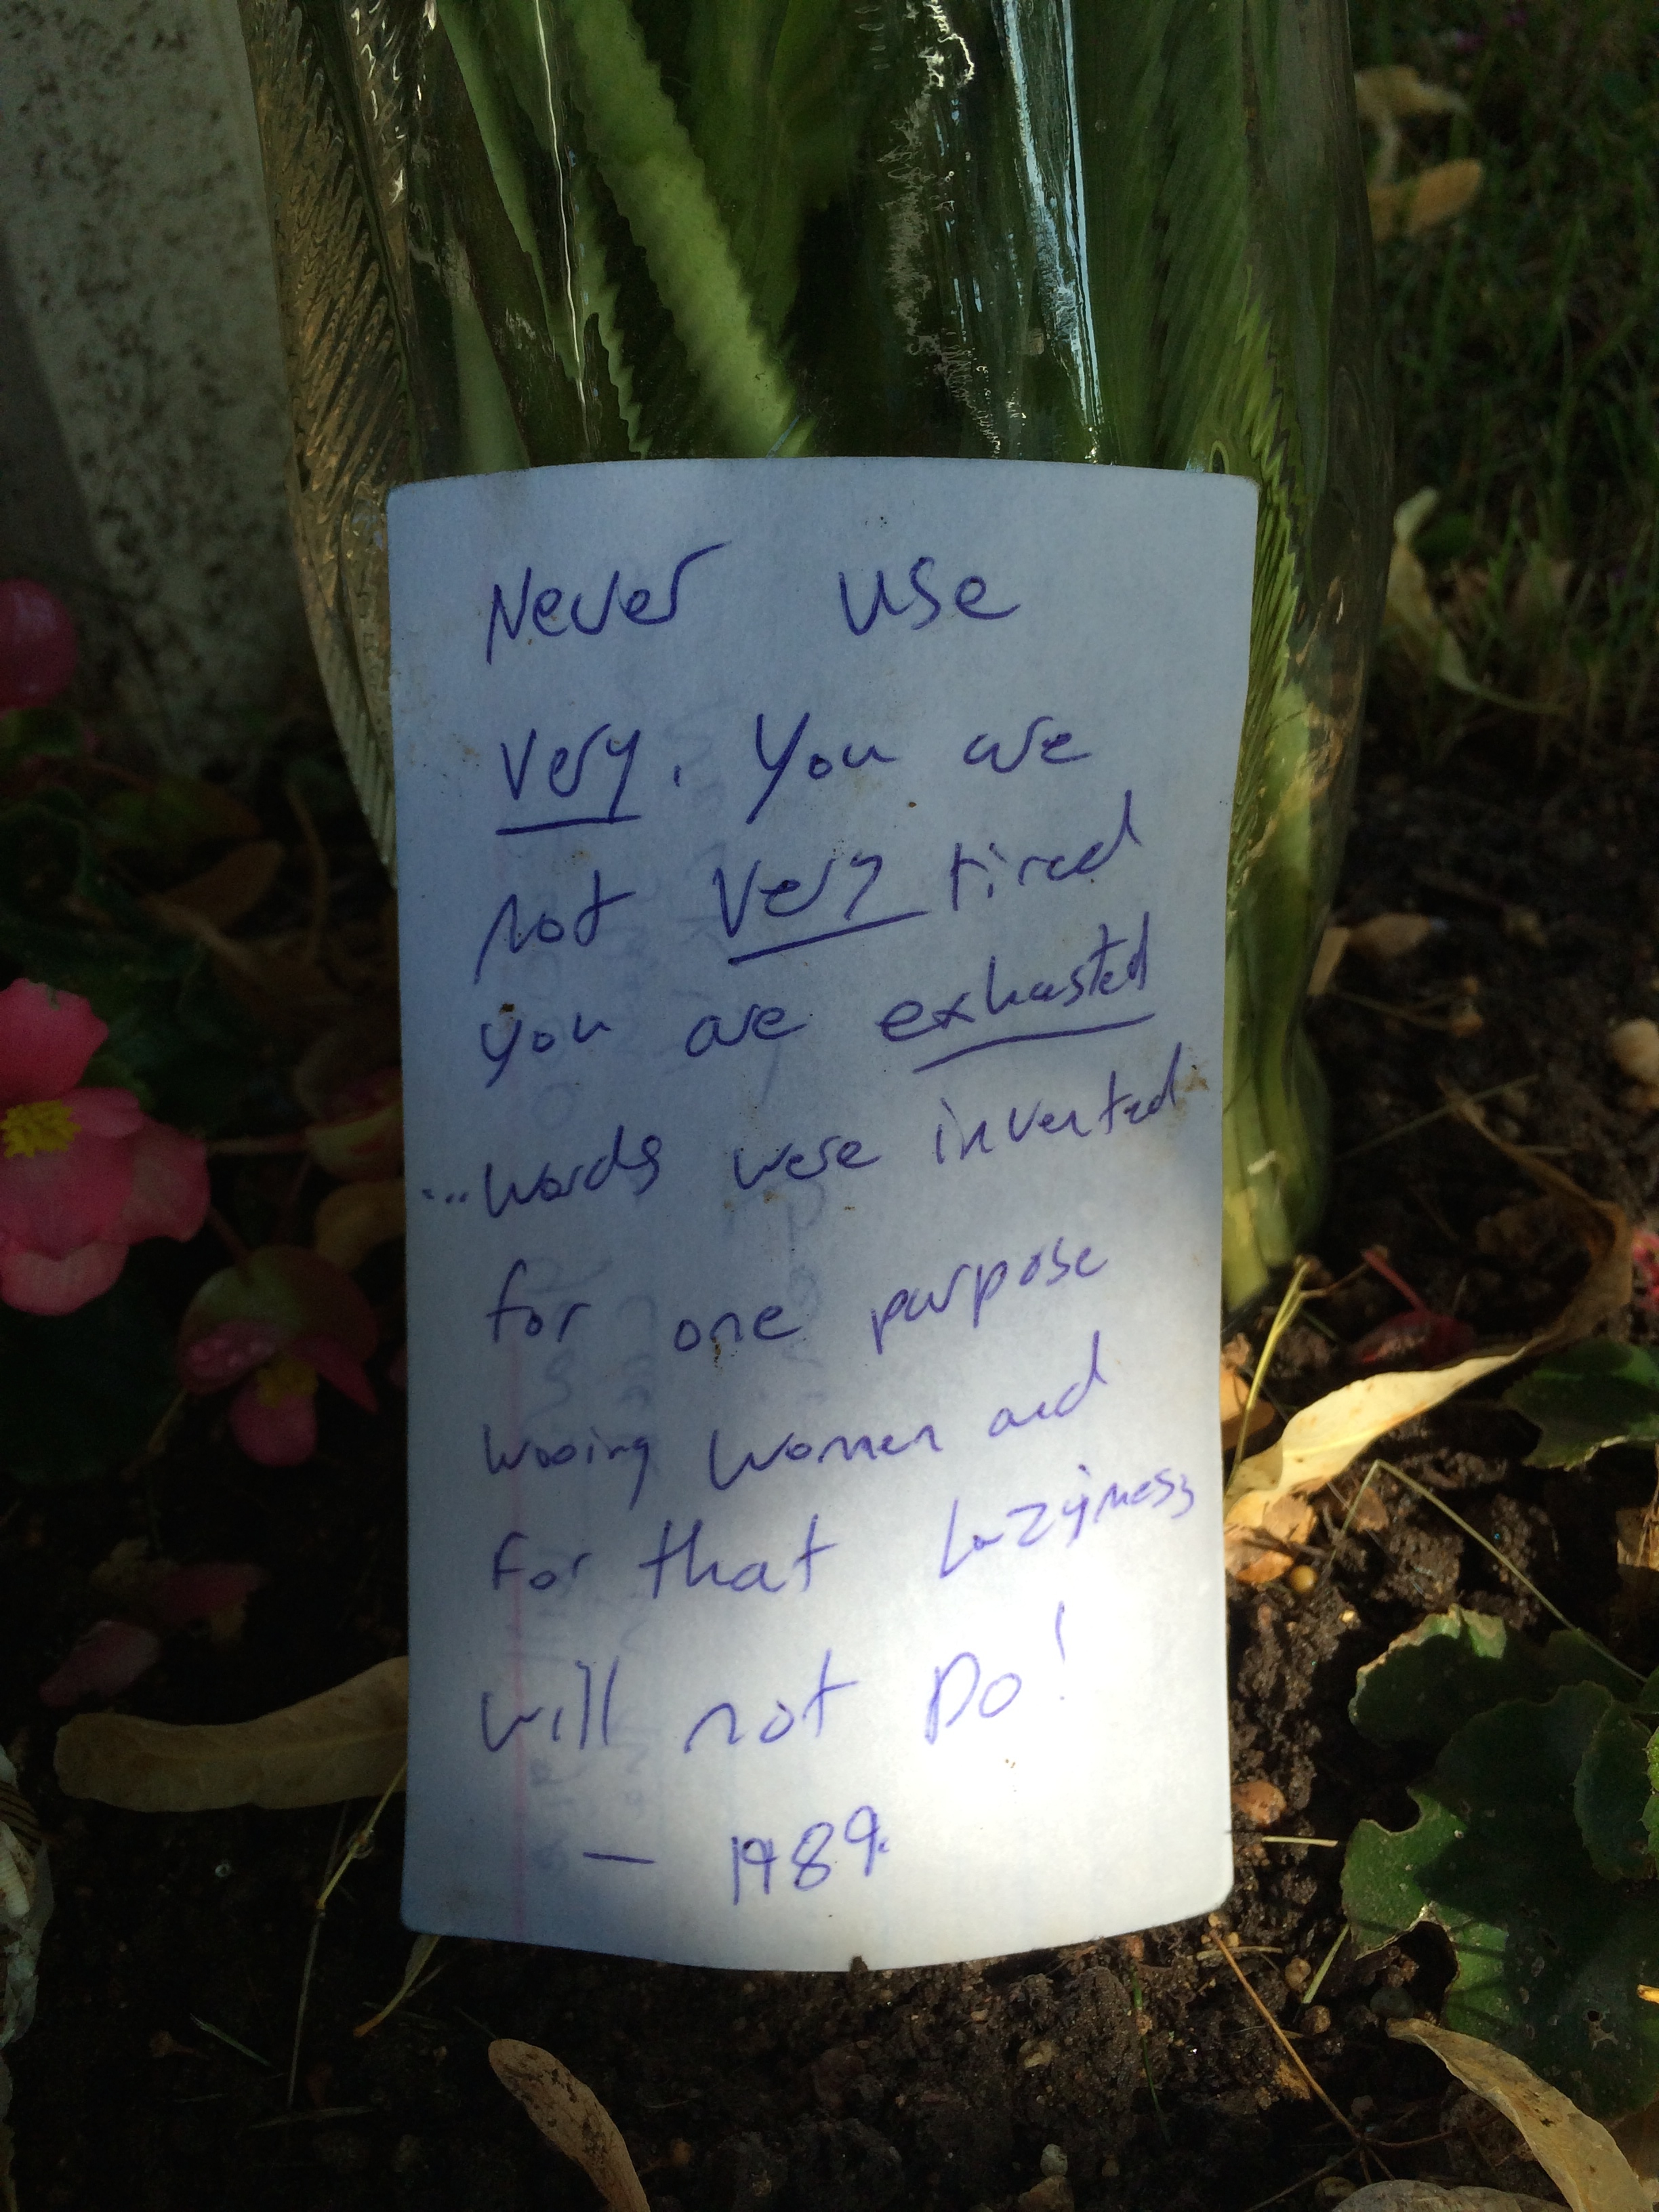 Never use
very. You are
not very tired
you are exhasted
...words were invented
for one purpose
wooing women and
for that lazyness
will not Do!
— 1989.